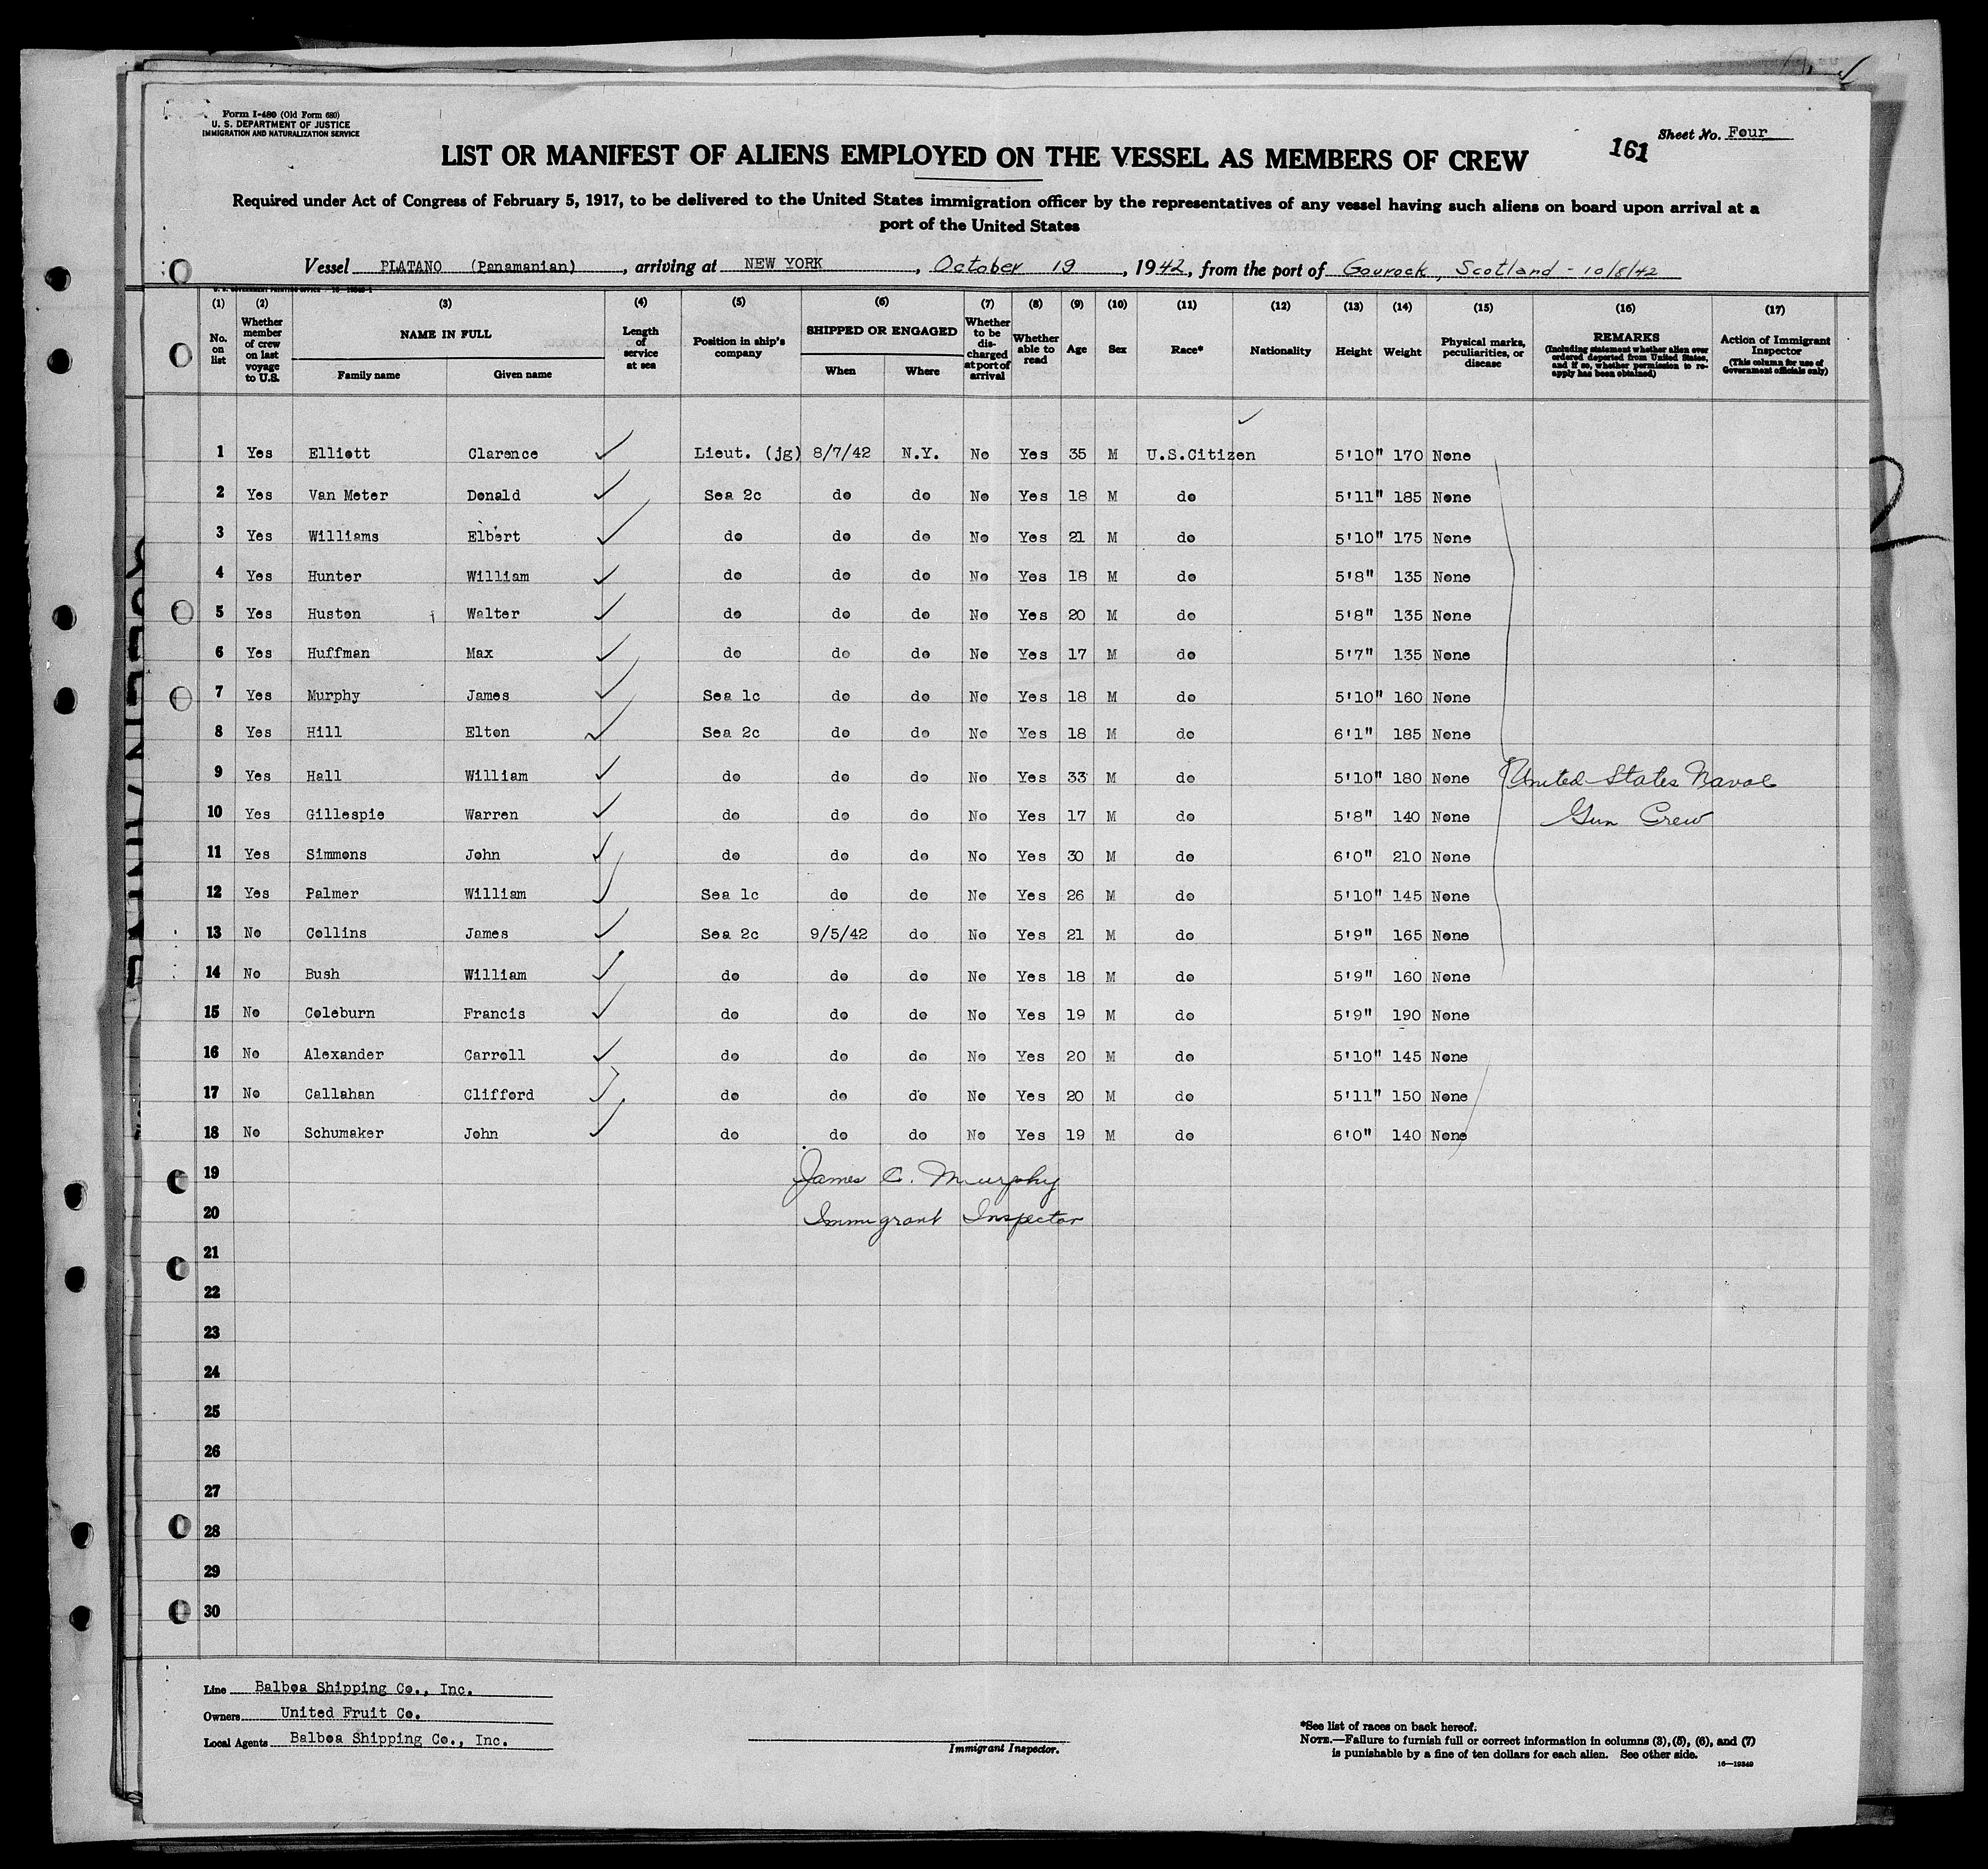 Form I-480 (Old Form 680)
U. S. DEPARTMENT OF JUSTICE
IMMIGRATION AND NATURALIZATION SERVICE
Sheet No. Four
161
LIST OR MANIFEST OF ALIENS EMPLOYED ON THE VESSEL AS MEMBERS OF CREW
Required under Act of Congress of February 5, 1917, to be delivered to the United States immigration officer by the representatives of any vessel having such aliens on board upon arrival at a
port of the United States
Vessel PLATANO (Panamanian), arriving at NEW YORK, October 19, 1942, from the port of Gourock, Scotland - 10/8/42
(1) No. on list
(2) Whether member of crew on last voyage to U.S.
(3) NAME IN FULL Family name Given name
(4) Length of service at sea
(5) Position in ship's company
(6) SHIPPED OR ENGAGED When Where
(7) Whether to be discharged at port of arrival
(8) Whether able to read
(9) Age
(10) Sex
(11) Race*
(12) Nationality
(13) Height
(14) Weight
(15) Physical marks, peculiarities, or disease
(16) REMARKS (Including statement whether alien ever ordered deported from United States, and if so, whether permission to reapply has been obtained)
(17) Action of Immigrant Inspector (This column for use of Government officials only)
1 Yes Elliott Clarence Lieut. (jg) 8/7/42 N.Y. No Yes 35 M U.S.Citizen 5'10" 170 None
2 Yes Van Meter Donald Sea 2c do do No Yes 18 M do 5'11" 185 None
3 Yes Williams Elbert do do do No Yes 21 M do 5'10" 175 None
4 Yes Hunter William do do do No Yes 18 M do 5'8" 135 None
5 Yes Huston Walter do do do No Yes 20 M do 5'8" 135 None
6 Yes Huffman Max do do do No Yes 17 M do 5'7" 135 None
7 Yes Murphy James Sea 1c do do No Yes 18 M do 5'10" 160 None
8 Yes Hill Elton Sea 2c do do No Yes 18 M do 6'1" 185 None
9 Yes Hall William do do do No Yes 33 M do 5'10" 180 None United States Naval
10 Yes Gillespie Warren do do do No Yes 17 M do 5'8" 140 None Gun Crew
11 Yes Simmons John do do do No Yes 30 M do 6'0" 210 None
12 Yes Palmer William Sea 1c do do No Yes 26 M do 5'10" 145 None
13 No Collins James Sea 2c 9/5/42 do No Yes 21 M do 5'9" 165 None
14 No Bush William do do do No Yes 18 M do 5'9" 160 None
15 No Coleburn Francis do do do No Yes 19 M do 5'9" 190 None
16 No Alexander Carroll do do do No Yes 20 M do 5'10" 145 None
17 No Callahan Clifford do do do No Yes 20 M do 5'11" 150 None
18 No Schumaker John do do do No Yes 19 M do 6'0" 140 None
19 James C. Murphy
20 Immigrant Inspector
21
22
23
24
25
26
27
28
29
30
Line Balboa Shipping Co., Inc.
Owners United Fruit Co.
Local Agents Balboa Shipping Co., Inc.
Immigrant Inspector.
*See list of races on back hereof.
NOTE.—Failure to furnish full or correct information in columns (3), (5), (6), and (7)
is punishable by a fine of ten dollars for each alien. See other side.
16—19349